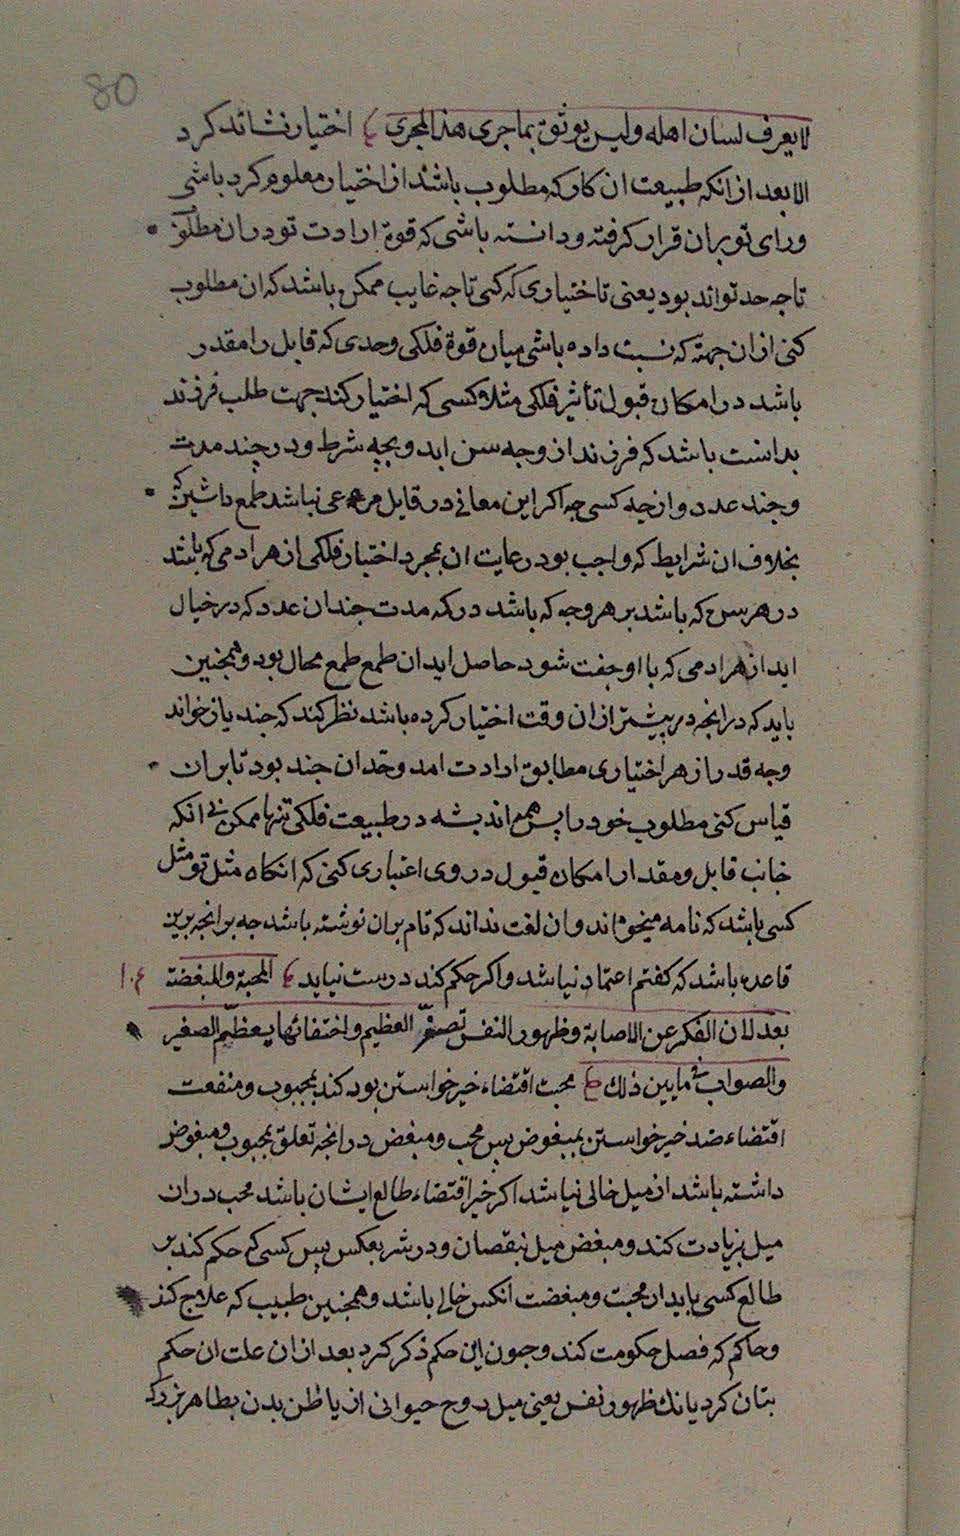 80
لا یعرف لسان اهله ولیس یوثق بما جری هذا المجری اختیار نشاند کرد
الا بعد از انکه طبیعت ان کار که مطلوب باشد از اختیار معلوم کرد باشی
ورای تو بران قرار کرفته و دانسته باشی که قوة ارادت تو دران مطلوب
تا چه حد تواند بود یعنی تا ختیاری که کنی تا چه غایب ممکن باشد که ان مطلوب
کنی از ان جهته که نسبت داده باشی میان قوة فلکی وحدی که قابل را مقدر
باشد در امکان قبول تأثیر فلکی مثلا کسی که اختیار کند جهت طلب فرزند
بدانست باشد که فرزند از وجه سن اید و بچه شرط و در چند مدت
وچند عدد و از چه کسی چه اکر این معانی در قابل مرعی نباشد طمع داشتن که
بخلاف ان شرایط که واجب بود رعایت ان بمجرد اختیار فلکی از هر ادمی که باشد
در هر سن که باشد بر هر وجه که باشد در که مدت چندان عدد که در خیال
اید از هر ادمی که با او جفت شود حاصل اید ان طمع طمع محال بود و همچنین
باید که در انچه در پیشتر از ان وقت اختیار کرده باشد نظر کند که چند یاز خواند
وچه قدر از هر اختیاری مطابق ارادت امد وحد ان چند بود تا بران
قیاس کنی مطلوب خود را پس همه اندیشه در طبیعت فلکی تنها ممکن بی انکه
جانب قابل و مقدار امکان قبول در وی اعتباری کنی که انکاه مثل تو مثل
کسی باشد که نامه میخواند وان لغت نداند که نام بران نوشته باشد چه بر انچه برین
قاعده باشد که کفتم اعتماد نباشد و اکر حکم کند درست نیاید المحبة والمبغضة
بعدلان الفکر عن الاصابة وظهور النفس تصغّر العظیم واختفائها یعظّم الصغیر
والصواب فی ما بین ذلک محبت اقتضاء خیر خواستن بود کند بمحبوب و منفعت
اقتضاء ضد خیر خواستن بمبغوض پس محب و مبغض در انچه تعلق بمحبوب و مبغوض
داشته باشد از میل خالی نباشد اکر خیر اقتضاء طالع ایشان باشد محب دران
میل بزیادت کند و مبغض میل بنقصان و در شر بعکس پس کسی که حکم کند بر
طالع کسی باید از محبت و مبغضت انکس خالی باشد و همچنین طبیب که علاج کند
و حاکم که فصل حکومت کند و چون این حکم ذکر کرد بعد از ان علت ان حکم
بتان کرد بانک ظهور نفس یعنی میل روح حیوانی از باطن بدن بظاهر بزرک